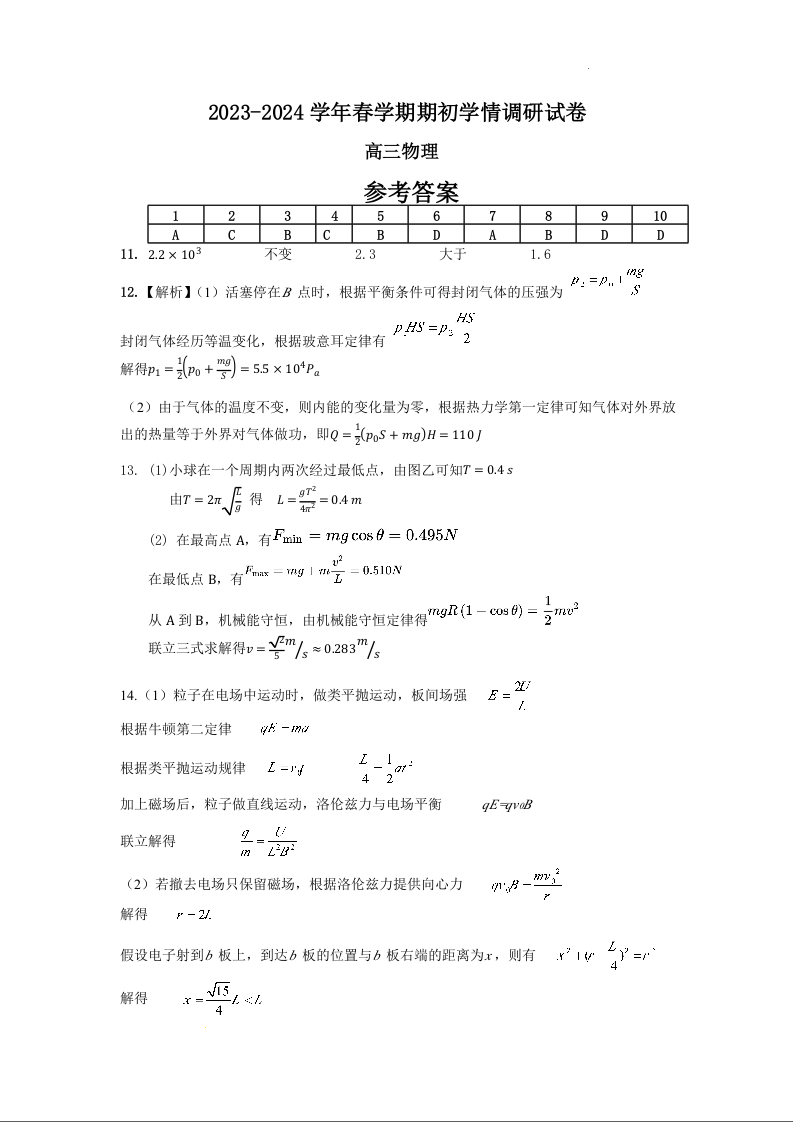 2023-2024 学年春学期期初学情调研试卷
高三物理
参考答案
1 2 3 4 5 6 7 8 9 10
A C B C B D A B D D
11. 2.2×10³ 不变 2.3 大于 1.6
12.【解析】（1）活塞停在 B 点时，根据平衡条件可得封闭气体的压强为 p₂=p₀+mg/S
封闭气体经历等温变化，根据玻意耳定律有 p₁HS=p₂HS/2
解得p₁=1/2(p₀+mg/S)=5.5×10⁴Pₐ
（2）由于气体的温度不变，则内能的变化量为零，根据热力学第一定律可知气体对外界放
出的热量等于外界对气体做功，即Q=1/2(p₀S+mg)H=110 J
13. (1)小球在一个周期内两次经过最低点，由图乙可知T=0.4 s
由T=2π√(L/g) 得 L=gT²/4π²=0.4 m
(2) 在最高点 A，有F_min=mg cosθ=0.495N
在最低点 B，有F_max=mg+m v²/L=0.510N
从 A 到 B，机械能守恒，由机械能守恒定律得mgR(1−cosθ)=1/2mv²
联立三式求解得v=√2/5 m/s≈0.283 m/s
14.（1）粒子在电场中运动时，做类平抛运动，板间场强 E=2U/L
根据牛顿第二定律 qE=ma
根据类平抛运动规律 L=v₀t L/4=1/2at²
加上磁场后，粒子做直线运动，洛伦兹力与电场平衡 qE=qv₀B
联立解得 q/m=U/L²B²
（2）若撤去电场只保留磁场，根据洛伦兹力提供向心力 qv₀B=mv₀²/r
解得 r=2L
假设电子射到 b 板上，到达 b 板的位置与 b 板右端的距离为 x，则有 x²+(r L/4)²=r
解得 x=√15/4 L<L